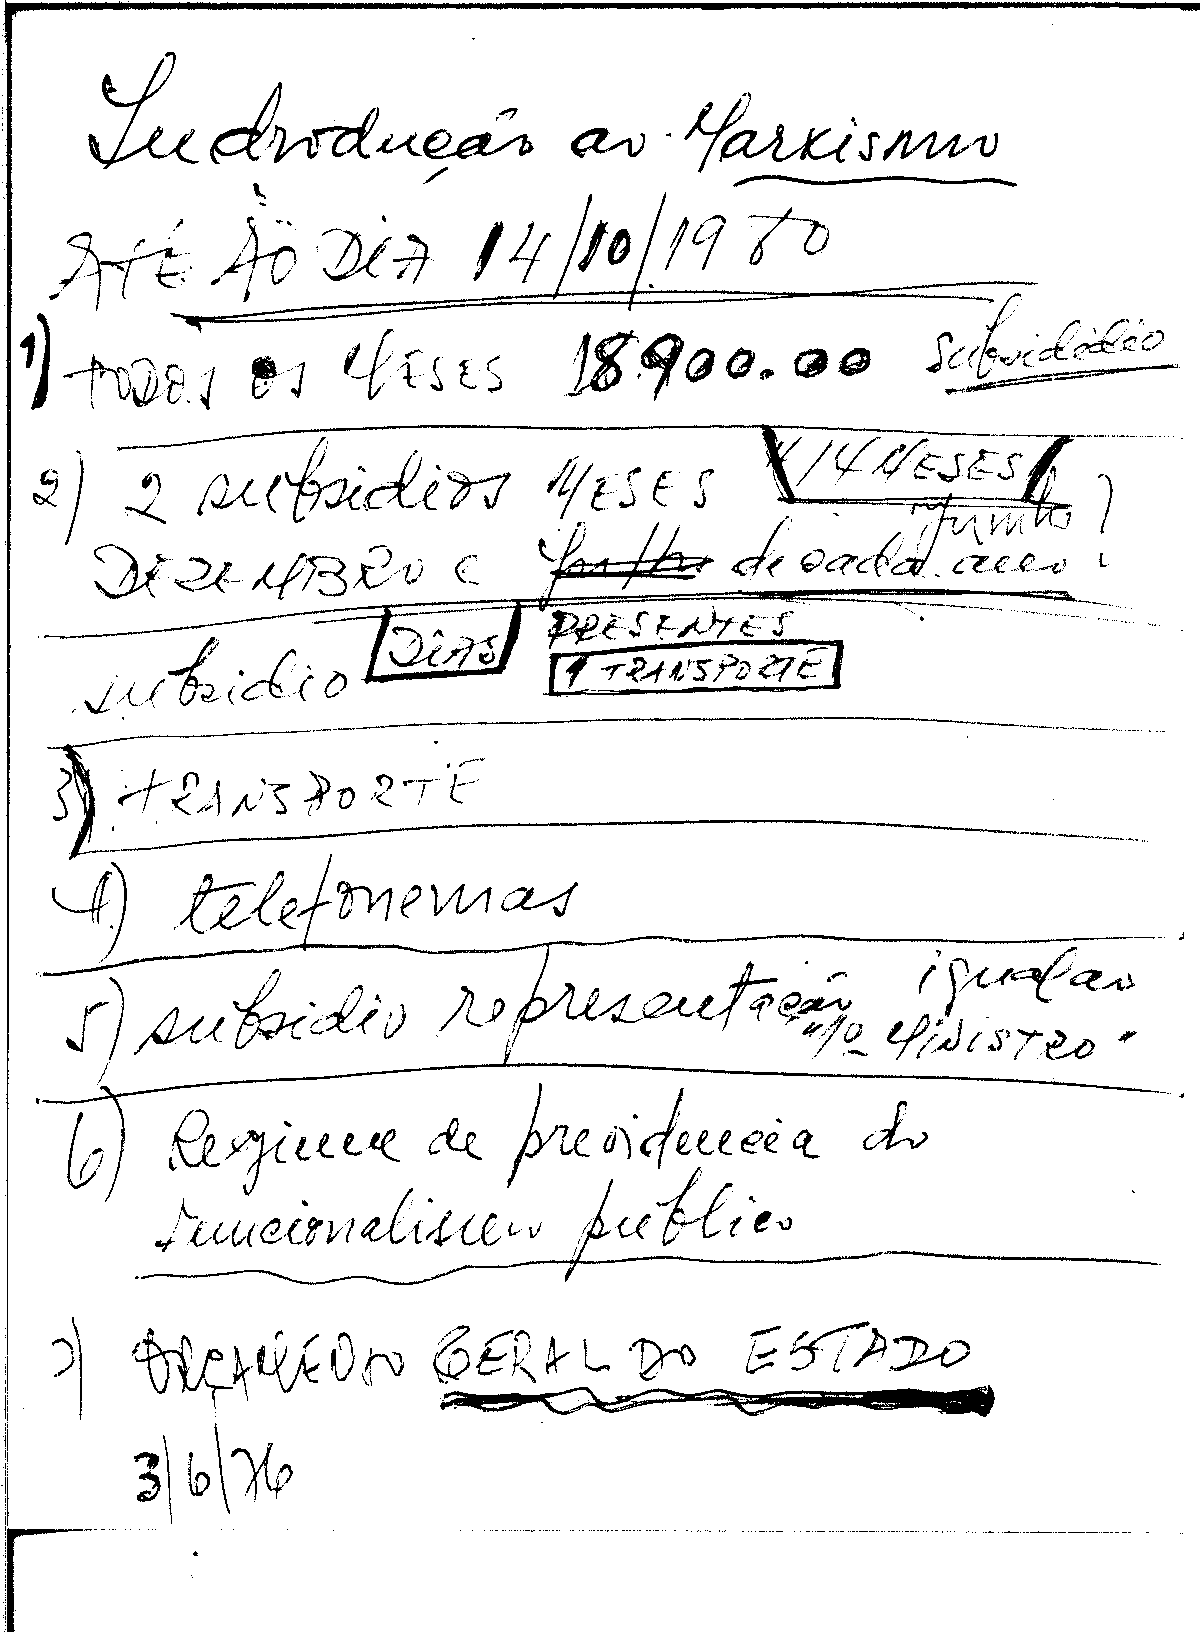 Introdução ao Marxismo
ATÉ AO DIA 14/10/1980
1) TODOS OS MESES 18.900.00 subsidio
2) 2 subsidios MESES 14 MESES
DEZEMBRO e Junho de cada ano?
subsidio DIAS PRESENTES
1 TRANSPORTE
3) TRANSPORTE
4) telefonemas
5) subsidio representação igual ao
"1º MINISTRO"
6) Regime de previdencia do
funcionalismo público
7) ORÇAMENTO GERAL DO ESTADO
3/6/76